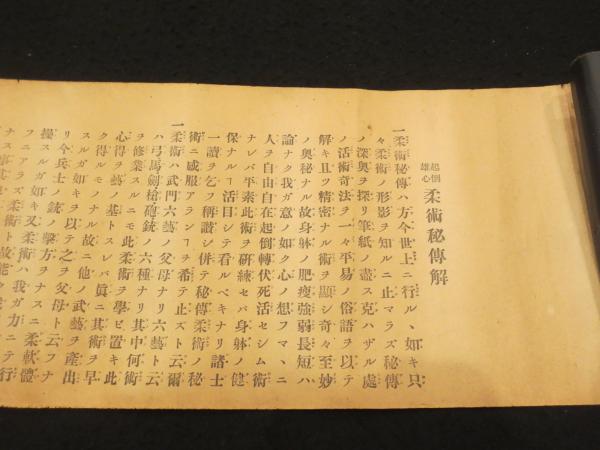 起倒
雄心
柔術秘傳解
一柔術秘傳ハ方今世上ニ行ル、如キ只
々柔術ノ形影ヲ知ルニ止マラズ秘傳
ノ深奥ヲ探リ筆紙ノ盡ス克ハザル處
ノ活術奇法ヲ一々平易ノ俗語ヲ以テ
解キ且ツ精密ナル術ヲ顯シ奇々至妙
ノ奥秘ナル故身躰ノ肥痩強弱長短ハ
論ナク我ガ意ノ如ク心ノ想フマヽニ
人ヲ自由自在起倒轉伏死活セシム術
ナレバ平素此術ヲ研練セバ身躰ノ健
保ナルヿ活目シテ看ルベキナリ諸士
一讀ヲ乞フ稱讃シ併テ秘傳柔術ノ秘
術ニ感服アランヿヲ希テ止ズト云爾
一柔術ハ武門六藝ノ父母ナリ六藝ト云
ハ弓馬劍槍砲銃ノ六種ナリ其中何術
ヲ修業スルニモ此柔術ヲ學ビ置キ此
心得ヲ藝ノ基トスレバ眞ニ其術ヲ早
ク得ルモノナル故ニ他ノ武藝ヲ産出
スルガ如キヲ以テ之ヲ父母ト云フナ
リ今兵士ノ銃ノ撃方ヲナスニ柔軟體
操スルガ如キ又柔術ハ我ガ力ニテ行
フニアラズ